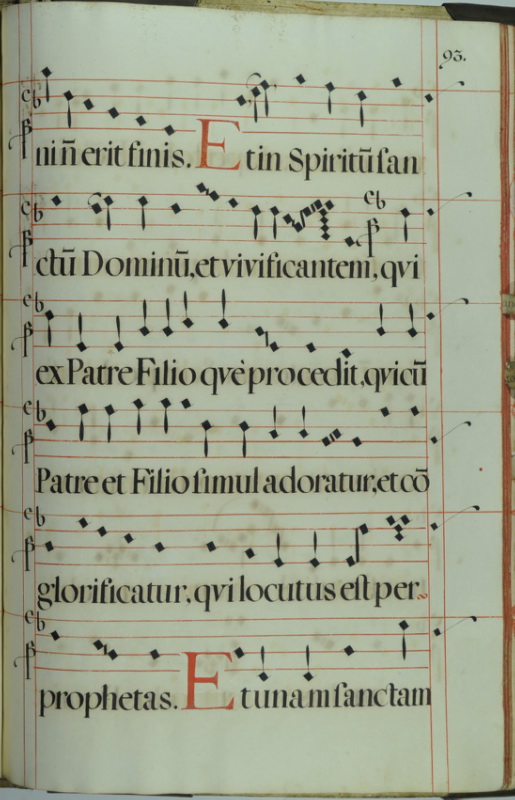 93.
ni n̄ erit finis. Et in Spiritū ſan
ctū Dominū, et vivificantem, qvi
ex Patre Filio qvè procedit, qvi cū
Patre et Filio ſimul adoratur, et cō
glorificatur, qvi locutus eſt per
prophetas. Et unam ſanctam